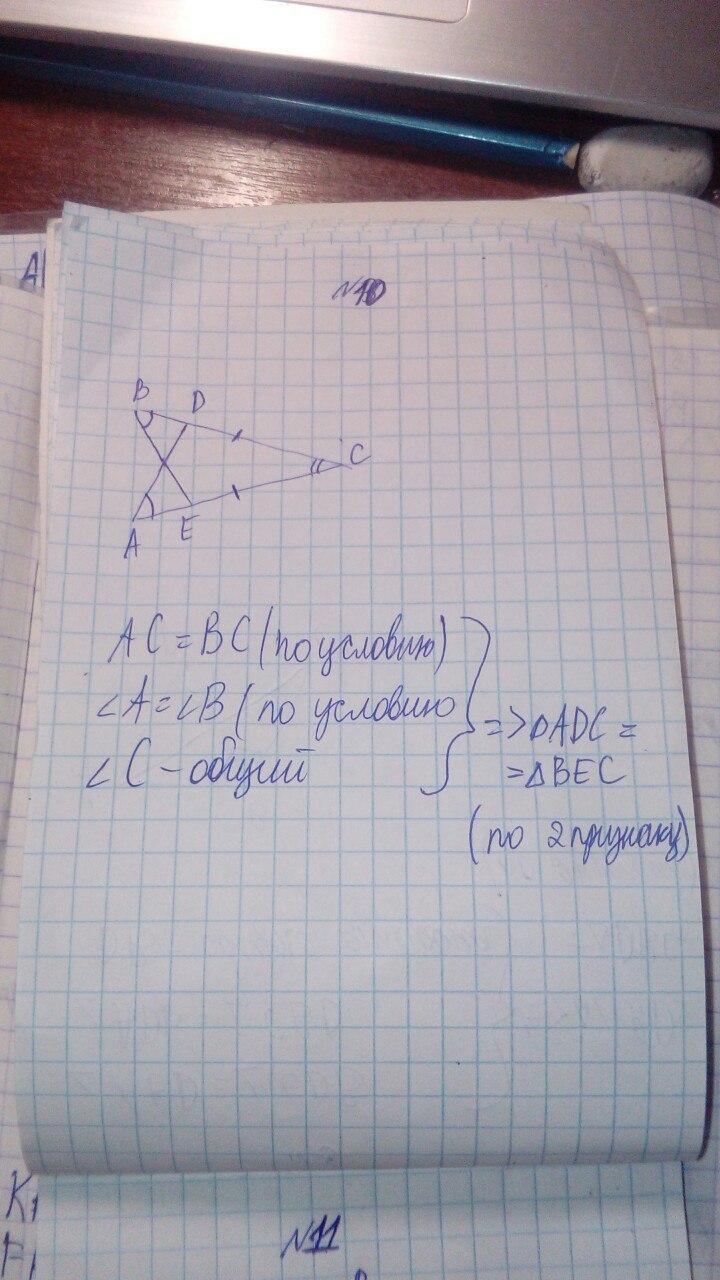 A
N10
B
D
C
A
E
AC = BC (по условию)
∠A = ∠B (по условию
∠C - общий
=> △ADC =
= △BEC
(по 2 признаку)
K
F
N11